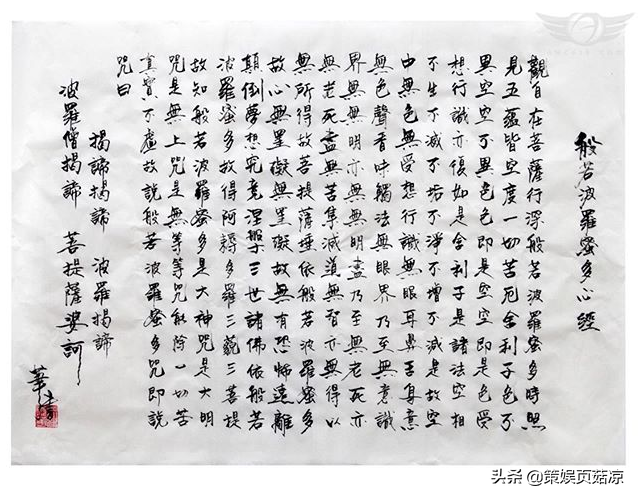 般若波羅蜜多心經
觀自在菩薩行深般若波羅蜜多時照
見五蘊皆空度一切苦厄舍利子色不
異空空不異色色即是空空即是色受
想行識亦復如是舍利子是諸法空相
不生不滅不垢不淨不增不減是故空
中無色無受想行識無眼耳鼻舌身意
無色聲香味觸法無眼界乃至無意識
界無無明亦無無明盡乃至無老死亦
無老死盡無苦集滅道無智亦無得以
無所得故菩提薩埵依般若波羅蜜多
故心無罣礙無罣礙故無有恐怖遠離
顛倒夢想究竟涅槃三世諸佛依般若
波羅蜜多故得阿耨多羅三藐三菩提
故知般若波羅蜜多是大神咒是大明
咒是無上咒是無等等咒能除一切苦
真實不虛故說般若波羅蜜多咒即說
咒曰
揭諦揭諦 波羅揭諦
波羅僧揭諦 菩提薩婆訶
頭条@策娱页菇凉